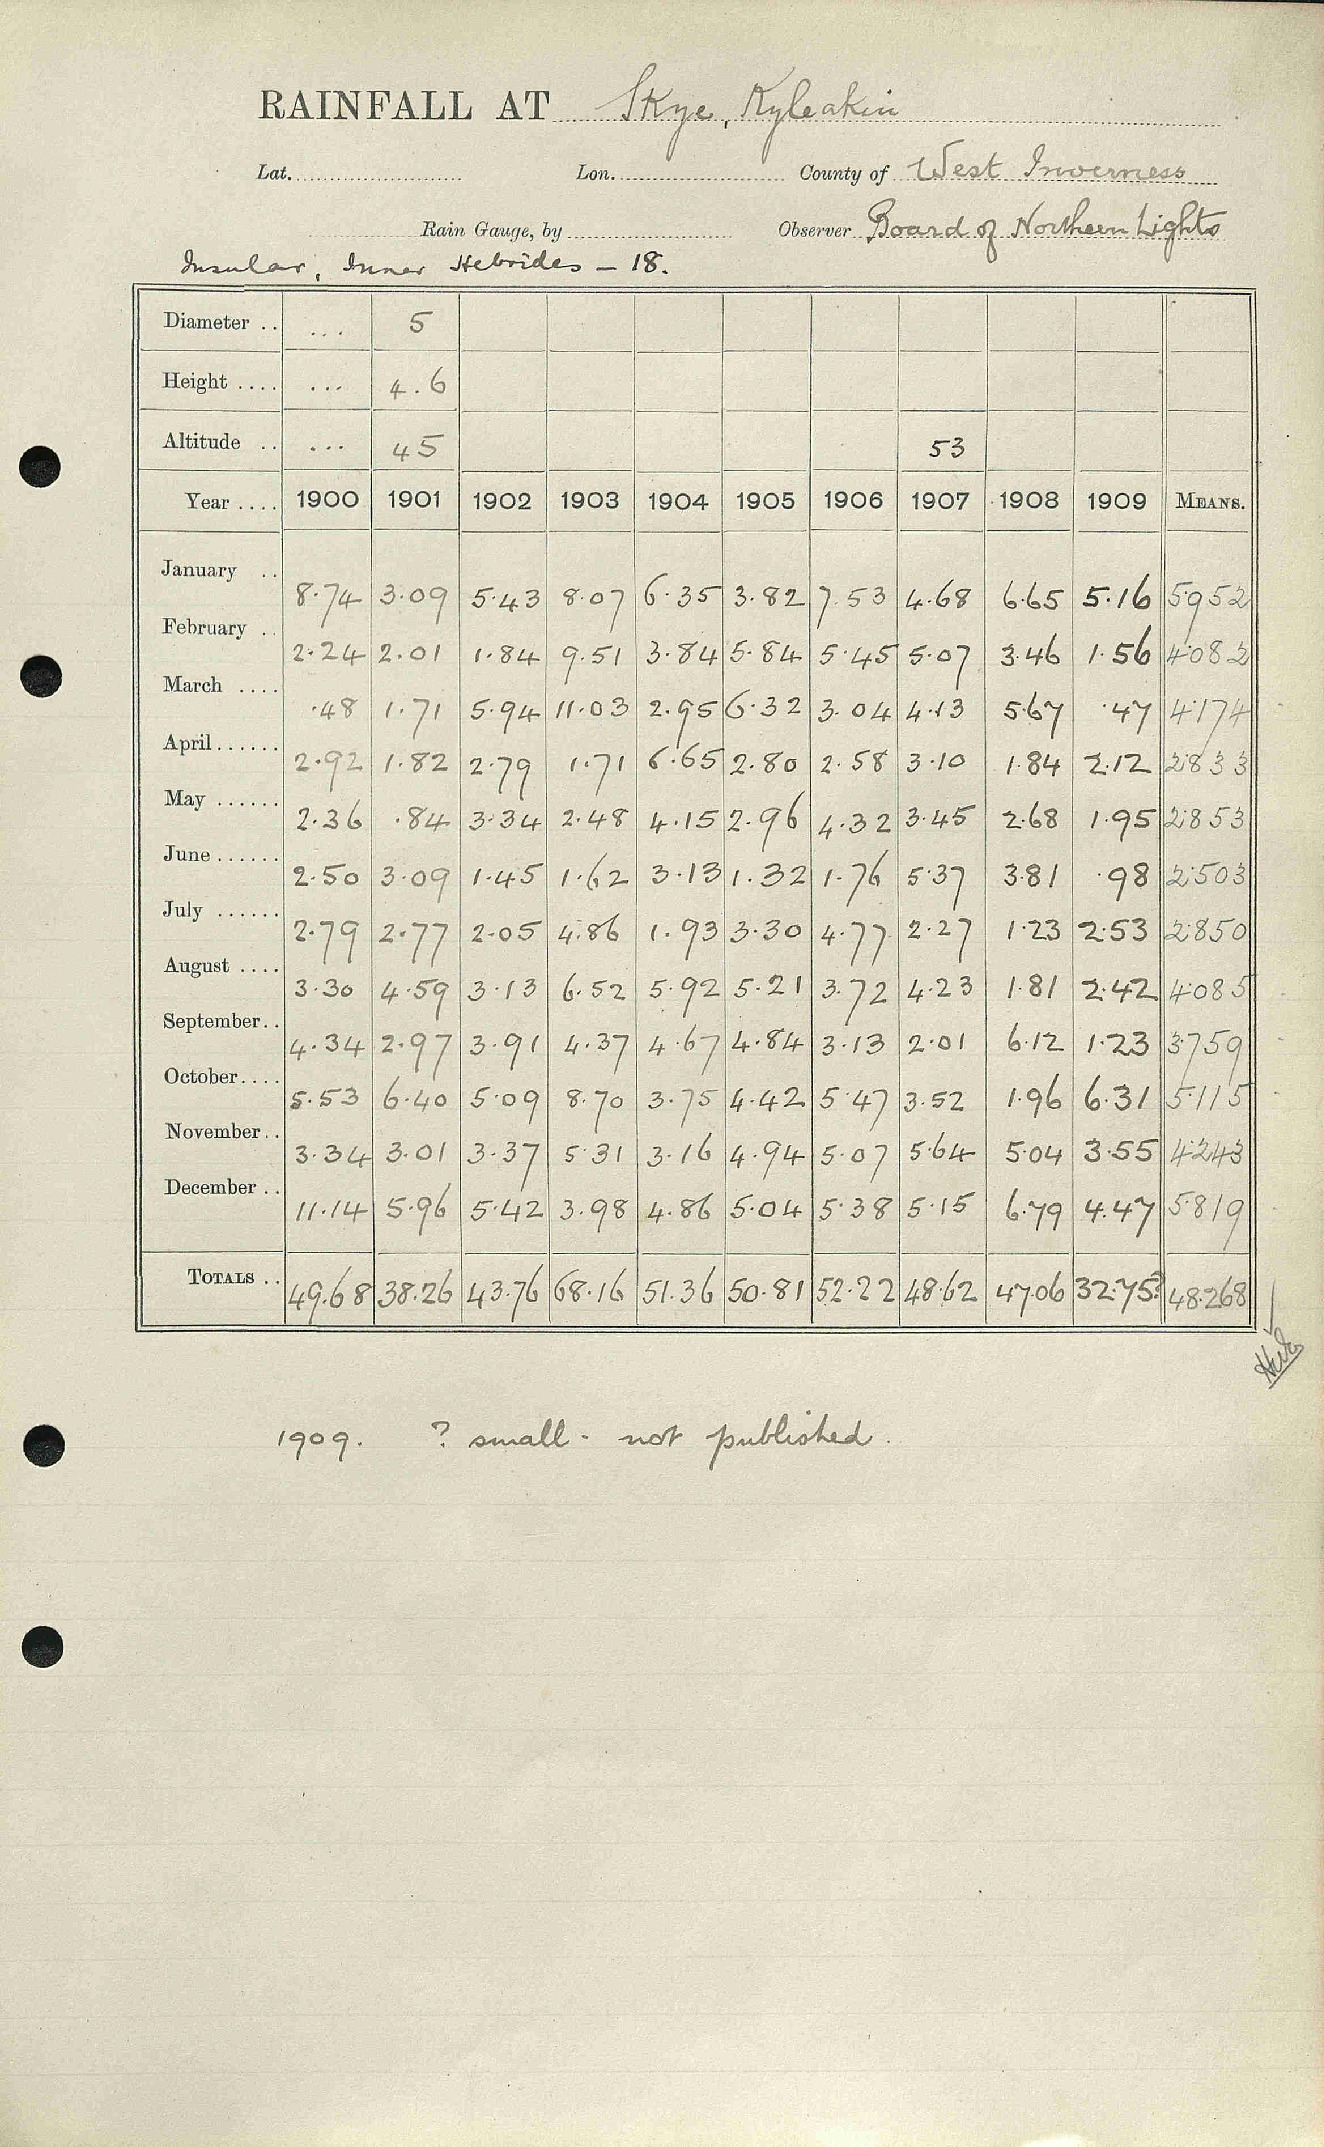 RAINFALL AT Skye, Kyleakin
Lat. Lon. County of West Inverness
Rain Gauge, by Observer Board of Northern Lights
Insular, Inner Hebrides – 18.
Diameter .. ... 5
Height .... ... 4.6
Altitude .. ... 45 53
Year .... 1900 1901 1902 1903 1904 1905 1906 1907 1908 1909 MEANS.
January .. 8.74 3.09 5.43 8.07 6.35 3.82 7.53 4.68 6.65 5.16 5.952
February .. 2.24 2.01 1.84 9.51 3.84 5.84 5.45 5.07 3.46 1.56 4.082
March .... .48 1.71 5.94 11.03 2.95 6.32 3.04 4.13 5.67 .47 4.174
April ...... 2.92 1.82 2.79 1.71 6.65 2.80 2.58 3.10 1.84 2.12 2.833
May ...... 2.36 .84 3.34 2.48 4.15 2.96 4.32 3.45 2.68 1.95 2.853
June ...... 2.50 3.09 1.45 1.62 3.13 1.32 1.76 5.37 3.81 .98 2.503
July ...... 2.79 2.77 2.05 4.86 1.93 3.30 4.77 2.27 1.23 2.53 2.850
August .... 3.30 4.59 3.13 6.52 5.92 5.21 3.72 4.23 1.81 2.42 4.085
September .. 4.34 2.97 3.91 4.37 4.67 4.84 3.13 2.01 6.12 1.23 3.759
October .... 5.53 6.40 5.09 8.70 3.75 4.42 5.47 3.52 1.96 6.31 5.115
November .. 3.34 3.01 3.37 5.31 3.16 4.94 5.07 5.64 5.04 3.55 4.243
December .. 11.14 5.96 5.42 3.98 4.86 5.04 5.38 5.15 6.79 4.47 5.819
TOTALS .. 49.68 38.26 43.76 68.16 51.36 50.81 52.22 48.62 47.06 32.75? 48.268
1909. ? small - not published.